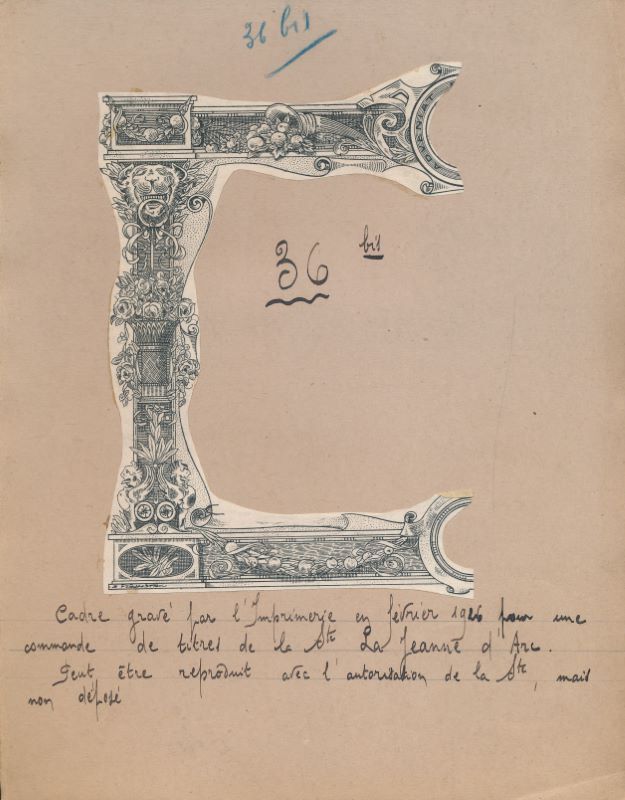 36 bis
36 bis
Cadre gravé par l'Imprimerie en février 1926 pour une
commande de titres de la Sté La Jeanne d'Arc.
Peut être reproduit avec l'autorisation de la Sté, mais
non déposé